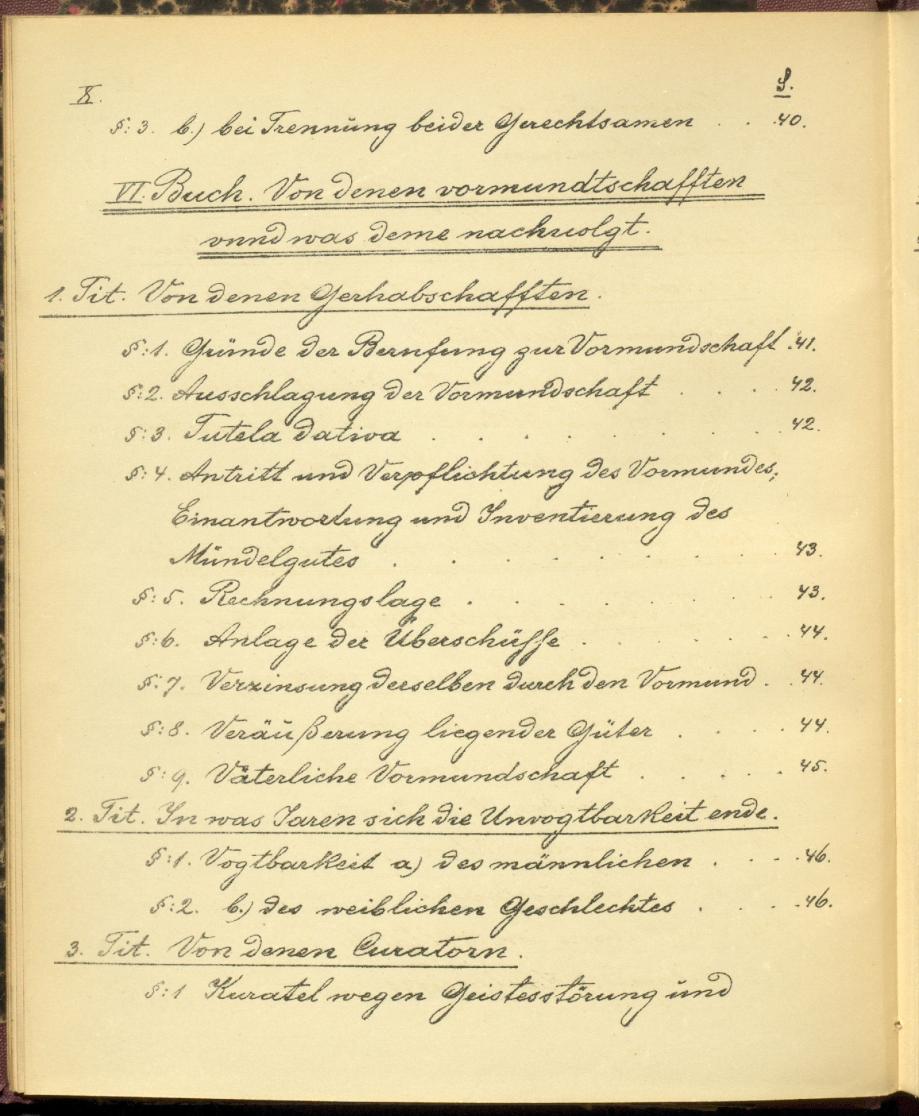 X.
S.
§: 3. b.) bei Trennung beider Gerechtsamen . . 40.
VI. Buch. Von denen vormundtschafften
vnnd was deme nachuolgt.
1. Tit. Von denen Gerhabschafften.
§: 1. Gründe der Berufung zur Vormundschaft . 41.
§: 2. Ausschlagung der Vormundschaft . . . . 42.
§: 3. Tutela dativa . . . . . . . . 42.
§: 4. Antritt und Verpflichtung des Vormundes;
Einantwortung und Inventierung des
Mündelgutes . . . . . . . . 43.
§: 5. Rechnungslage . . . . . . . 43.
§: 6. Anlage der Überschüsse . . . . . 44.
§: 7. Verzinsung derselben durch den Vormund . . 44.
§: 8. Veräußerung liegender Güter . . . . 44.
§: 9. Väterliche Vormundschaft . . . . . 45.
2. Tit. In was Jaren sich die Unvogtbarkeit ende.
§: 1. Vogtbarkeit a) des männlichen . . . . 46.
§: 2. b.) des weiblichen Geschlechtes . . . . 46.
3. Tit. Von denen Curatorn.
§: 1 Kuratel wegen Geistesstörung und